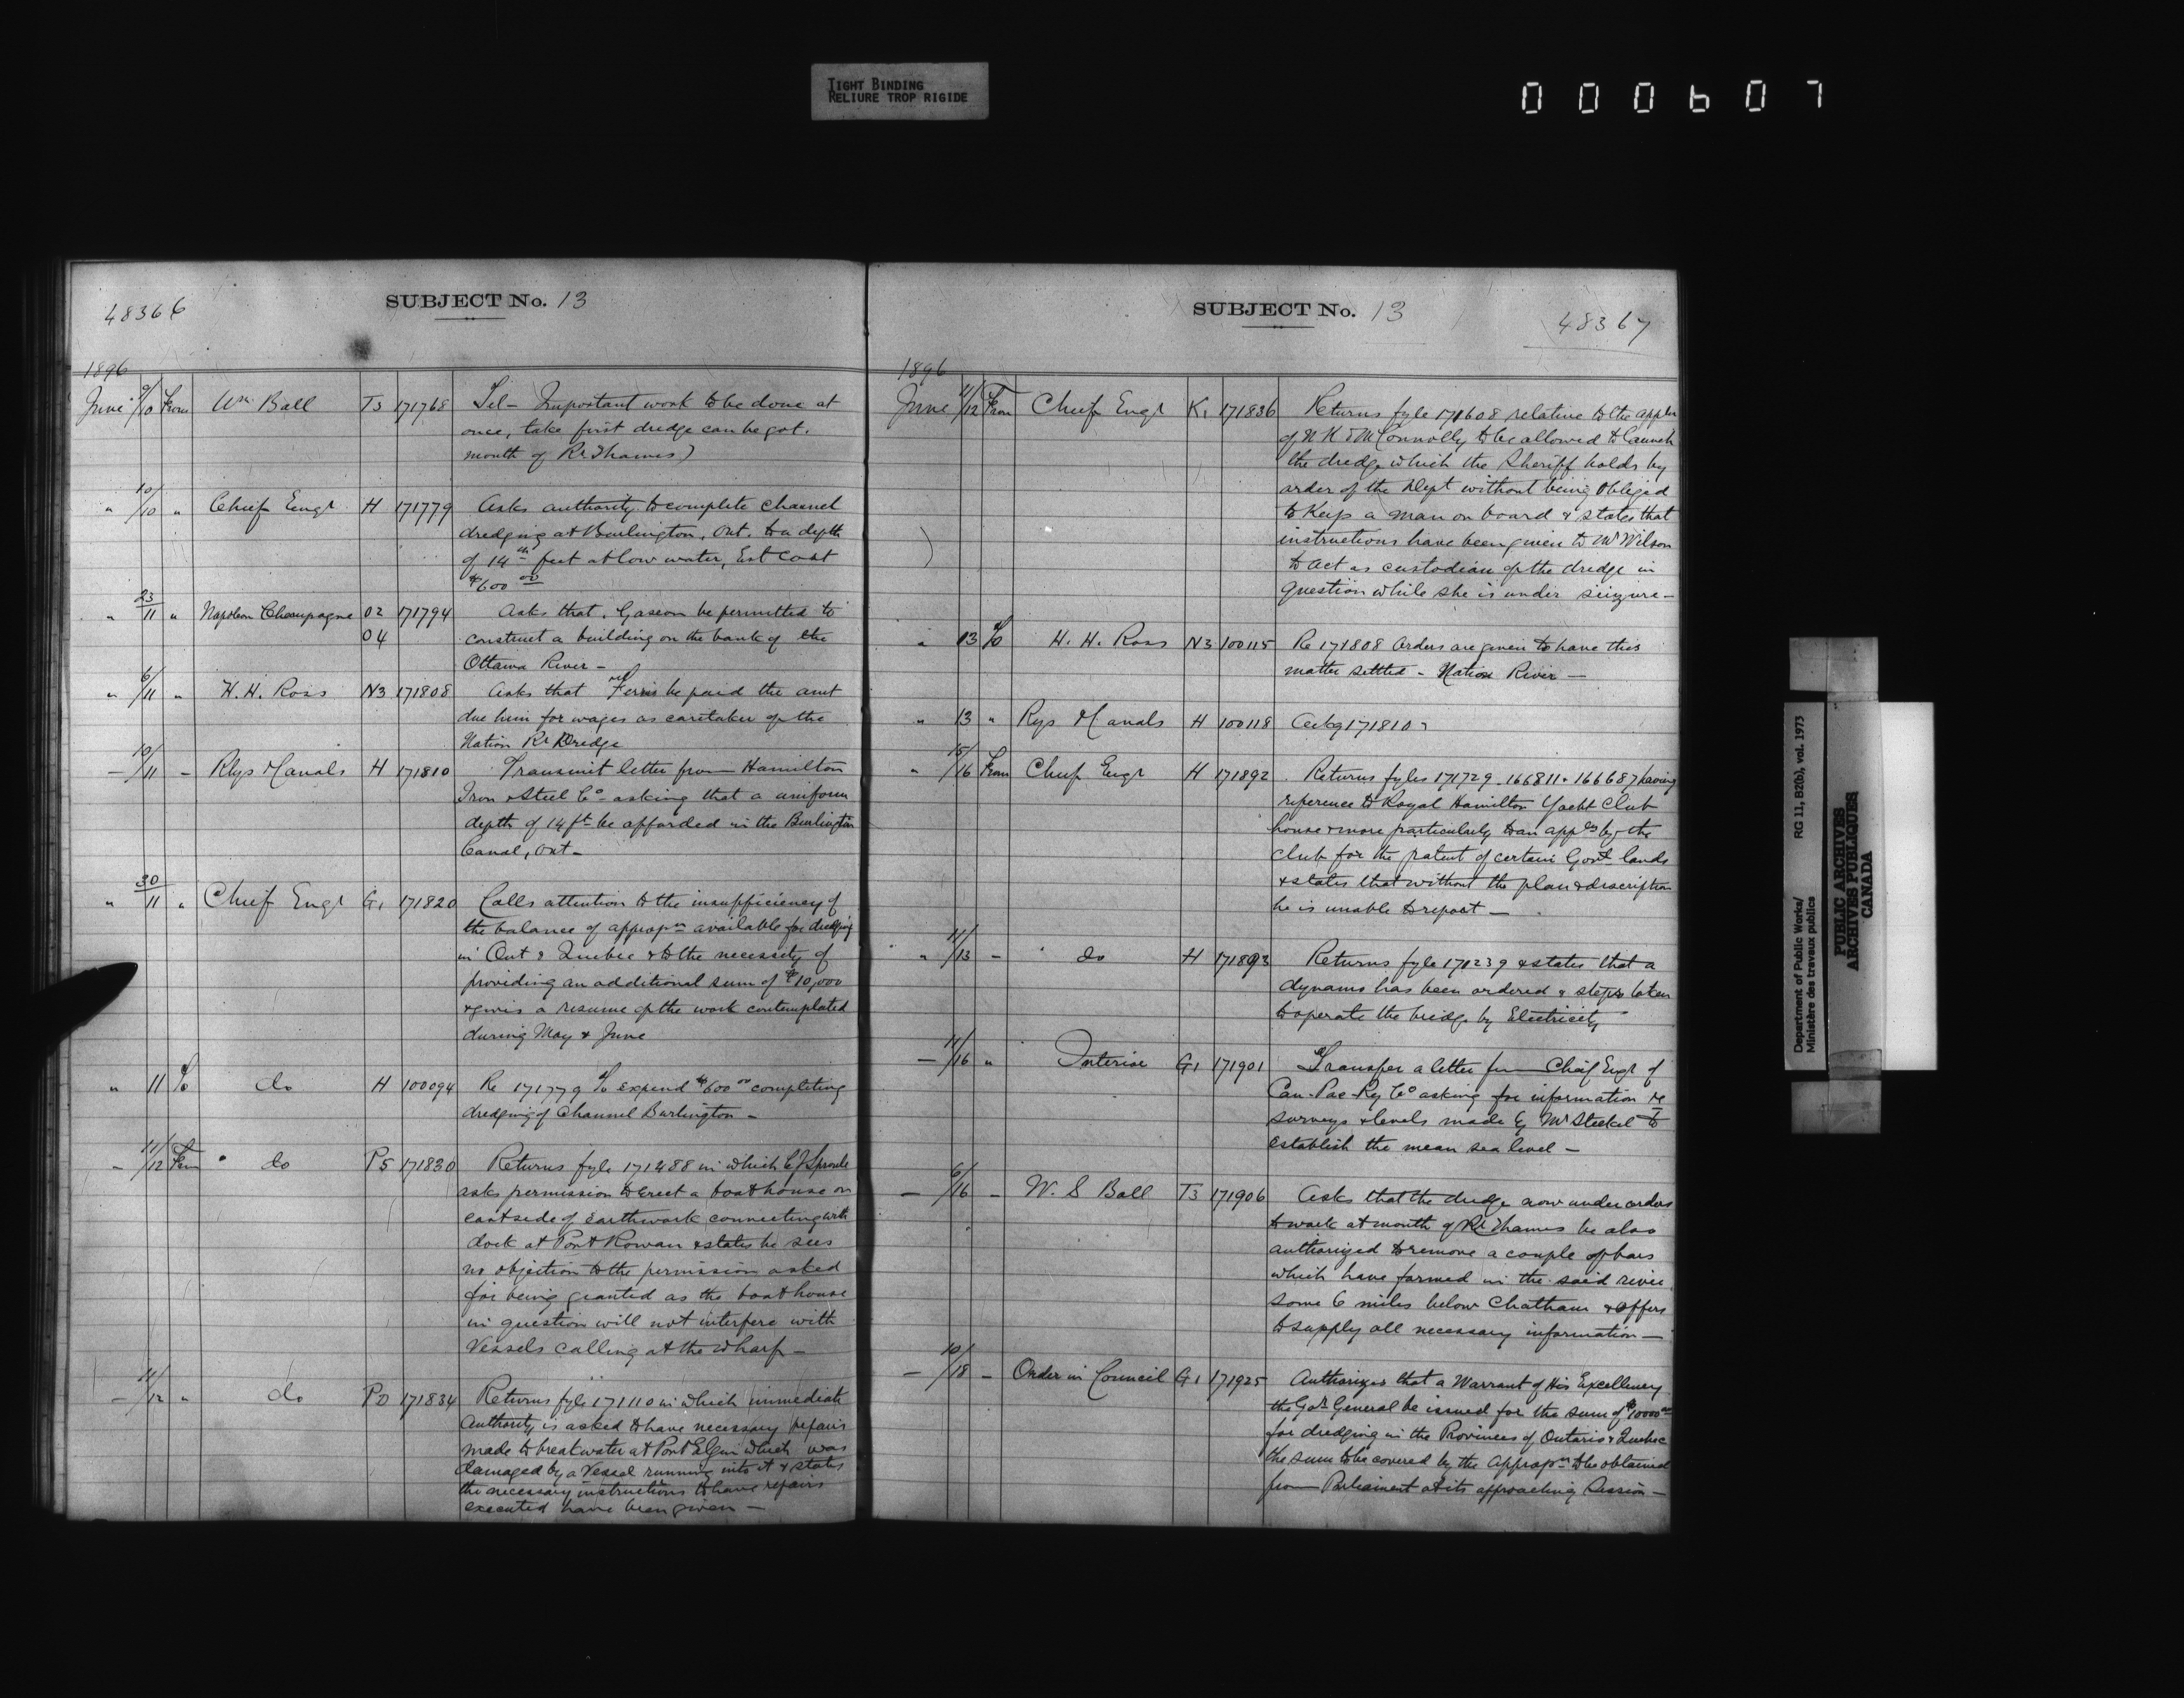 TIGHT BINDING
RELIURE TROP RIGIDE
000607
48366
SUBJECT No. 13
1896
June 9/10 From Wm Ball T3 171768 Tel - Important work to be done at
once, take first dredge can be got.
mouth of Rr Thames)
" 10/10 " Chief Engr H 171779 Asks authority to complete channel
dredging at Burlington, Ont. to a depth
of 14 feet at low water, Est Cost
$600 00
" 23/11 " Napoleon Champagne 02 171794 Asks that, Gascon be permitted to
04 construct a building on the bank of the
Ottawa River -
" 6/11 " H. H. Ross N3 171808 Asks that Mr Ferris be paid the amt
due him for wages as caretaker of the
Nation Rr Dredge
— 10/11 - Rlys & Canals H 171810 Transmit letter from Hamilton
Iron & Steel Co - asking that a uniform
depth of 14 ft be afforded in the Burlington
Canal, Ont -
" 30/11 " Chief Engr G1 171820 Calls attention to the insufficiency of
the balance of appropn available for dredging
in Ont & Quebec & to the necessity of
providing an additional sum of $10,000
& gives a resume of the work contemplated
during May & June
" 11 To do H 100094 Re 171779 To expend $600 00 completing
dredging of Channel Burlington -
— 11/12 From do P5 171830 Returns fyle 171488 in which C J Sproule
asks permission to erect a boathouse on
east side of earthwork connecting with
dock at Port Rowan & states he sees
no objection to the permission asked
for being granted as the boathouse
in question will not interfere with
Vessels calling at the wharf -
— 11/12 " do PD 171834 Returns fyle 171110 in which immediate
Authority is asked to have necessary repairs
made to breakwater at Port Elgin which was
damaged by a Vessel running into it & states
the necessary instructions to have repairs
executed have been given -
SUBJECT No. 13
48367
1896
June 11/12 From Chief Engr K1 171836 Returns fyle 171608 relative to the appln
of N K & M Connolly to be allowed to launch
the dredge which the Sheriff holds by
order of the Dept without being obliged
to Keep a man on board & states that
instructions have been given to Mr Wilson
to act as custodian of the dredge in
question while she is under seizure -
" 13 To H. H. Ross N3 100115 Re 171808 Orders are given to have this
matter settled - Nation River -
" 13 " Rys & Canals H 100118 Ackg 171810
" 15/16 From Chief Engr H 171892 Returns fyles 171729 - 166811 & 166687 having
reference to Royal Hamilton Yacht Club
house & more particularly to an appln by the
club for the patent of certain Govt lands
& states that without the plan & description
he is unable to report -
" 11/13 - do H 171893 Returns fyle 170239 & states that a
dynamo has been ordered & steps taken
to operate the bridge by Electricity
— 11/16 " Interior G1 171901 Transfer a letter from Chief Engr of
Can-Pac-Ry Co asking for information re
surveys & levels made by Mr Steckel to
establish the mean sea level -
— 6/16 - W. S Ball T3 171906 Asks that the dredge now under orders
to work at mouth of Rr Thames be also
authorized to remove a couple of bars
which have formed in the said river
some 6 miles below Chatham & offers
to supply all necessary information -
— 10/18 - Order in Council G1 171925 Authorizes that a Warrant of His Excellency
the Gov General be issued for the sum of $10000 00
for dredging in the Provinces of Ontario & Quebec
the sum to be covered by the appropn to be obtained
from Parliament at its approaching Session -
Department of Public Works/
Ministère des travaux publics
RG 11, B2(b), vol. 1973
PUBLIC ARCHIVES
ARCHIVES PUBLIQUES
CANADA